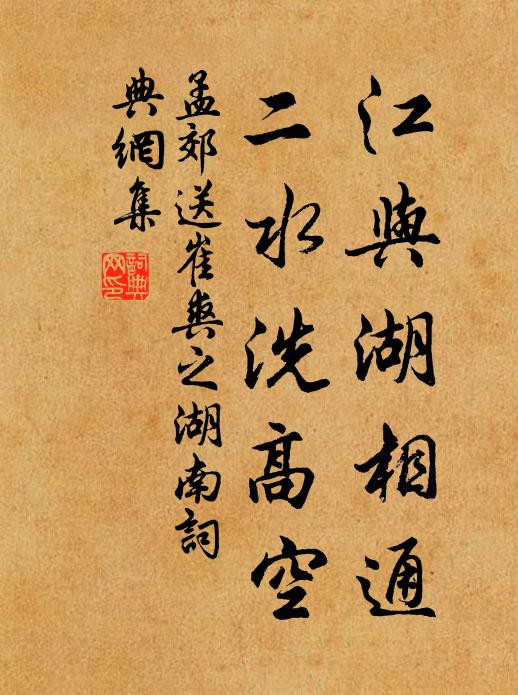 江與湖相通
二水洗高空
孟郊送崔爽之湖南詞
典網集
詞典網印